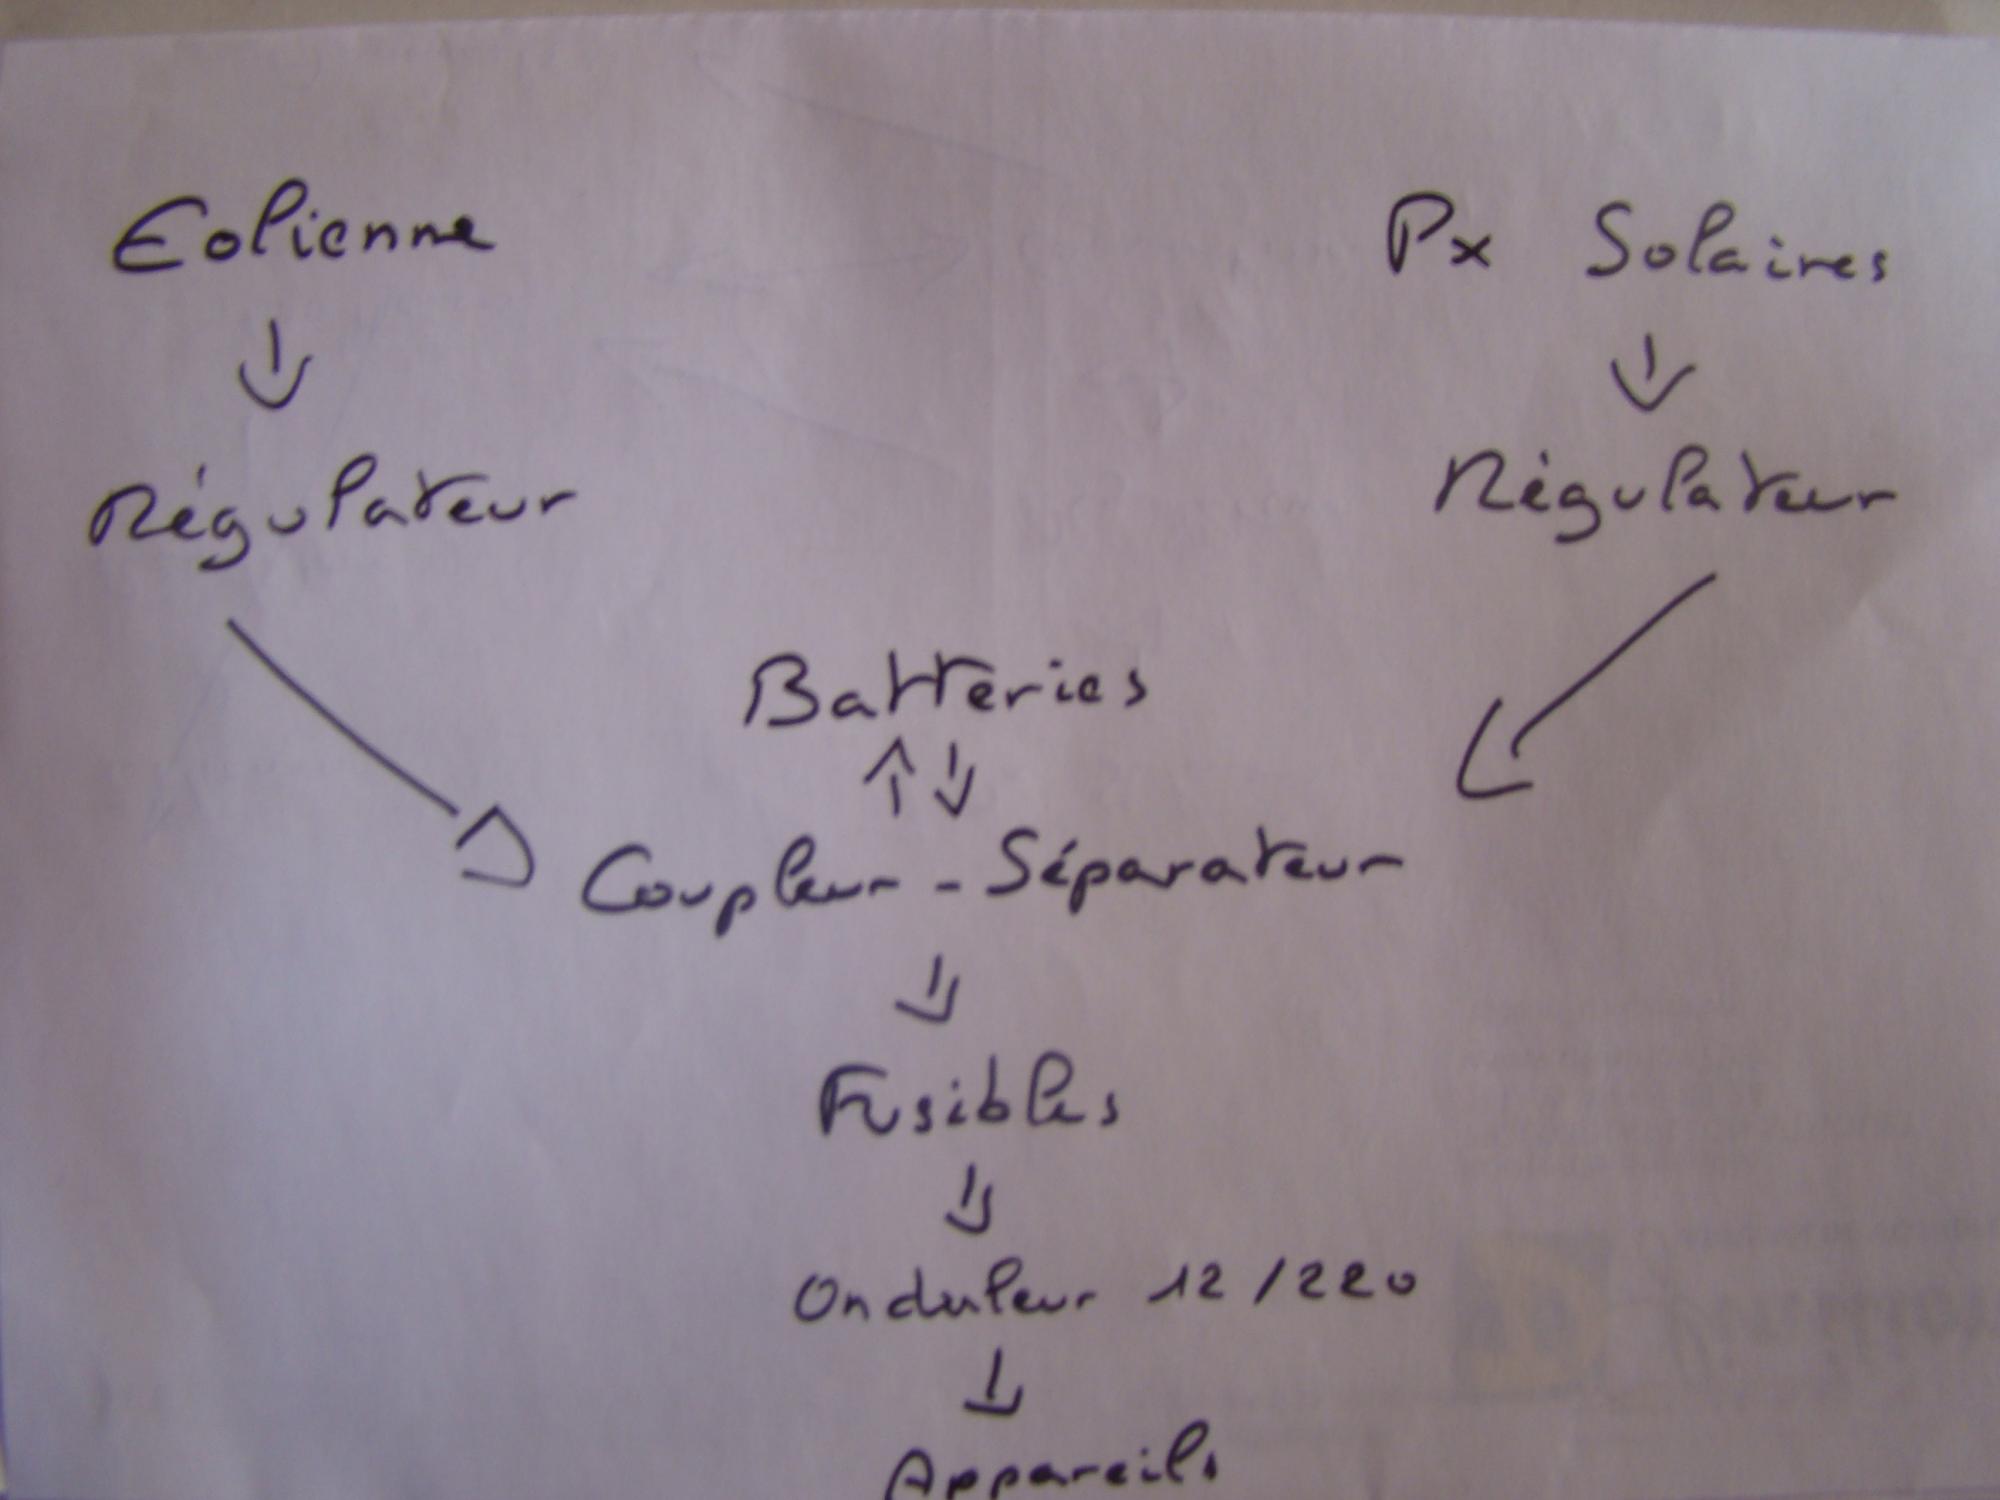 Eolienne Px Solaires
Régulateur Régulateur
Batteries
Coupleur - Séparateur
Fusibles
Onduleur 12/220
Appareils